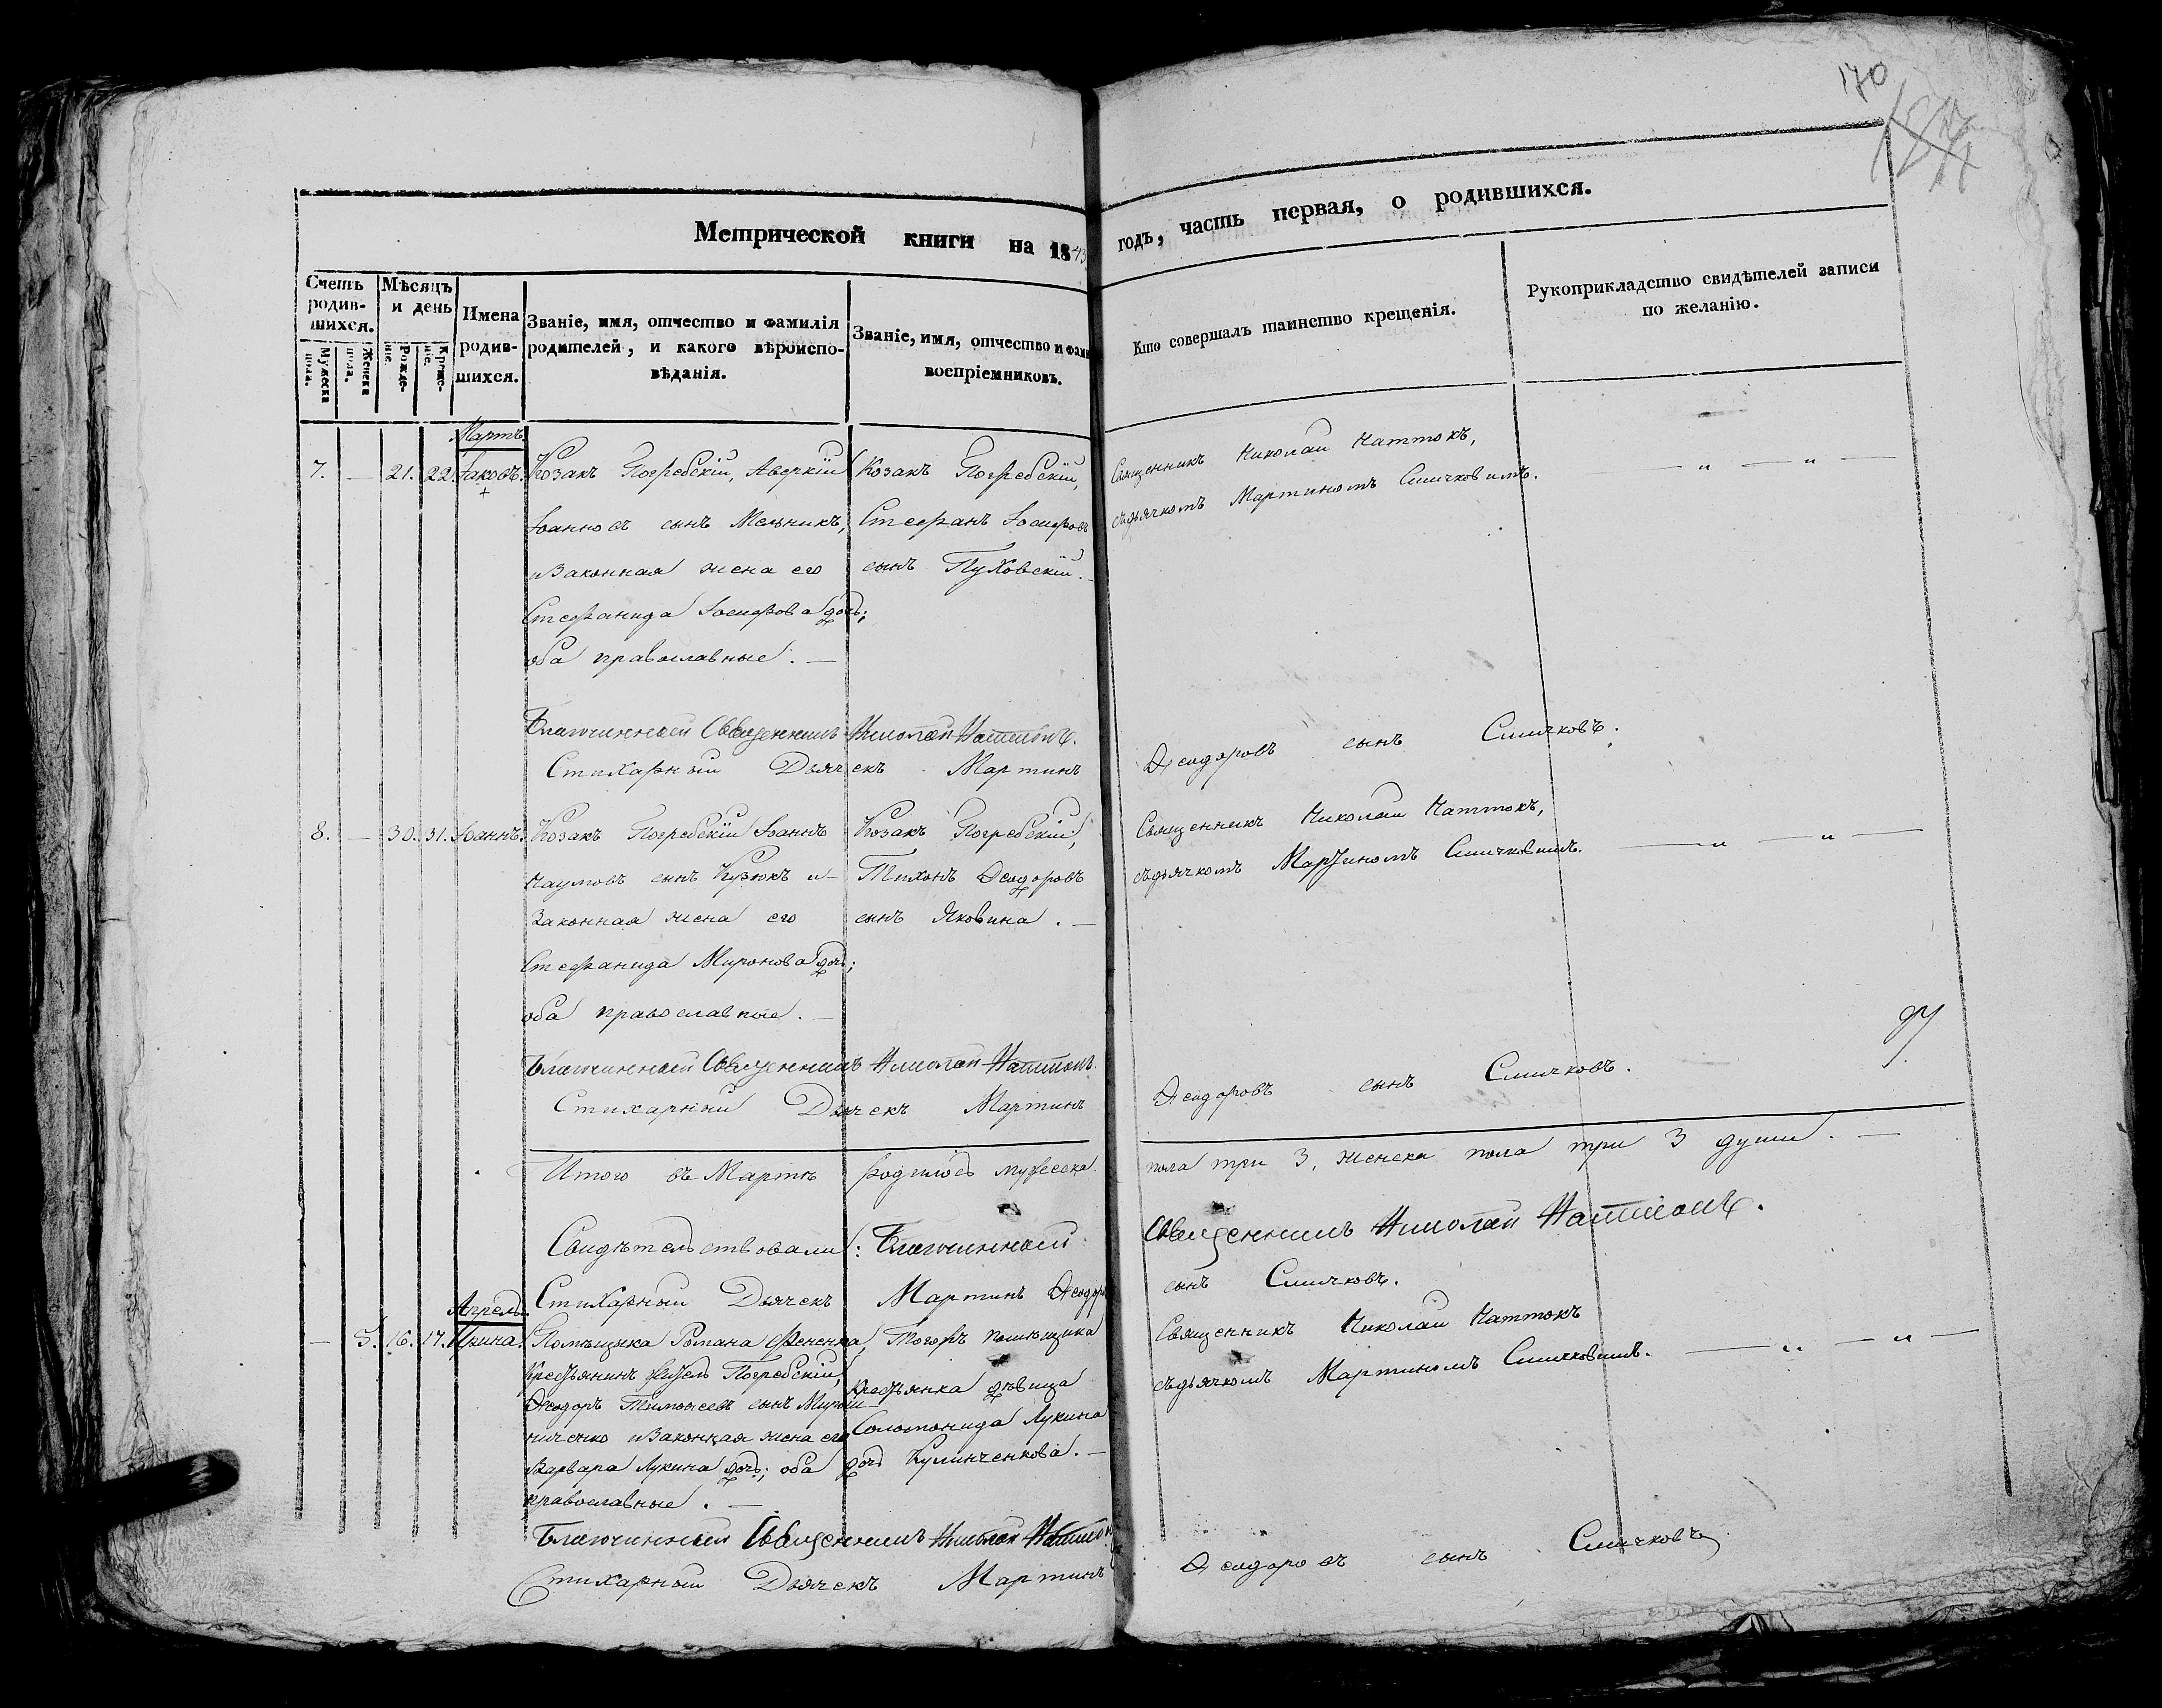 170
Метрической книги на 1843 годъ, часть первая, о родившихся.
Счетъ родив-шихся.
Мужеска пола.
Женска пола.
Мѣсяцъ и день
Рожде-ніе.
Креще-ніе.
Имена родив-шихся.
Званіе, имя, отчество и фамилія родителей, и какого вѣроиспо-вѣданія.
Званіе, имя, отчество и фами
воспріемниковъ.
Кто совершалъ таинство крещенія.
Рукоприкладство свидѣтелей записи по желанію.
Мартъ
7. — 21. 22. Іаковъ.
Козакъ Погребскій, Аверкій
Іоанновъ сынъ Мельникъ,
и законная жена его
Стефанида Іосифова дочь;
оба православные. —
Козакъ Погребскій,
Стефанъ Іосифовъ
сынъ Пуховскій. —
Священникъ Николай Наттокъ,
съ дьячкомъ Мартиномъ Сличковимъ.
Благочинный Священникъ Николай Наттокъ.
Стихарный Дьячекъ Мартинъ Ѳеодоровъ сынъ Сличковъ.
8. — 30. 31. Іоаннъ.
Козакъ Погребскій Іоаннъ
Наумовъ сынъ Кузюкъ и
законная жена его
Стефанида Миронова дочь;
оба православные. —
Козакъ Погребскій,
Тихонъ Ѳеодоровъ
сынъ Яковина. —
Священникъ Николай Наттокъ,
съ дьячкомъ Мартиномъ Сличковимъ.
Благочинный Священникъ Николай Наттокъ.
Стихарный Дьячекъ Мартинъ Ѳеодоровъ сынъ Сличковъ.
Итого въ Мартѣ родилось мужеска пола три 3, женска пола три 3 души. —
Свидѣтельствовали: Благочинный Священникъ Николай Наттокъ.
Стихарный Дьячекъ Мартинъ Ѳеодор сынъ Сличковъ.
Апрель.
— 5. 16. 17. Ирина.
Помѣщика Романа
Крестьянинъ Погребскій,
Ѳеодоръ Тимоѳеевъ сынъ Мирош-
ниченко и законная жена его
Варвара Лукина дочь; оба
православные. —
Тогожъ помѣщика
крестьянка дѣвица
Соломонида Лукина
дочь Кулинченкова. —
Священникъ Николай Наттокъ
съ дьячкомъ Мартиномъ Сличковимъ.
Благочинный Священникъ Николай Натток
Стихарный Дьячекъ Мартинъ Ѳеодоровъ сынъ Сличковъ